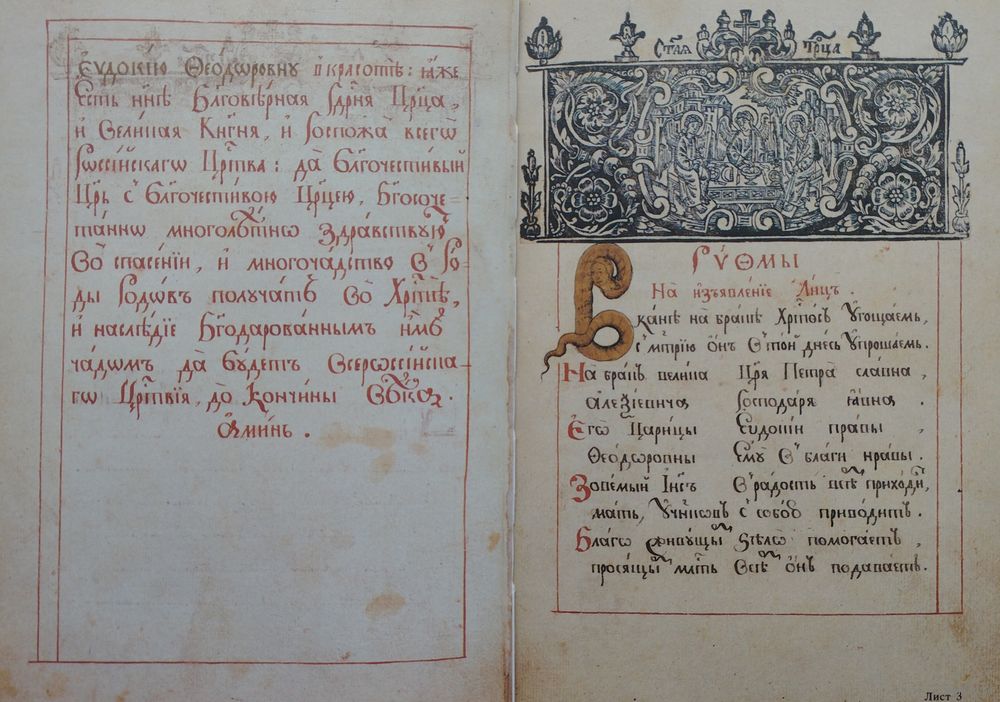 Еѵдокїю Ѳеодѡровну в красотѣ: ꙗже
есть нн҃ѣ Бл҃говѣрная Гдⷭ҇рня Цр҃ца,
и Великая Кнг҃ня, и Госпожа всегѡ
Рѡссїйскагѡ Црⷭ҇тва: да Бл҃гочестивый
Цр҃ь с Бл҃гочестивою Цр҃цею, Бг҃осоче=
таннѡ многолѣтнѡ здравствуюⷮ
Во спасенїи, и многочадство В Ро=
ды Родѡвъ получатъ Во Хрⷭ҇тѣ,
и наслѣдїе Бг҃одарованнымъ имъ
чадѡмъ да будетъ Всерѡссїйска=
гѡ Црⷭ҇твїя, до Кончины Вѣка.
Аминь.
Ст҃ая Трⷪ҇ца
Рѵѳмы
На изъявленїе Лицъ.
В Канѣ на бракѣ Хрⷭ҇тосъ Угощаемъ,
с мт҃рїю онъ В той днесь Упрошаемъ.
На бракъ велика Цр҃я Петра славна,
Алеѯїевича Господаря ꙗвна.
Егѡ Царицы Еѵдокїи правы,
Ѳеодѡровны Ему В благи нравы.
Зовемый Іи҃съ В радость всѣⷨ приходиⷮ,
мать, Ученикѡвъ с собою приводитъ.
Благо живущыⷨ зѣлѡ помогаетъ,
просящыⷨ мл҃ть Всѣⷨ онъ подаваетъ.
Лист 3